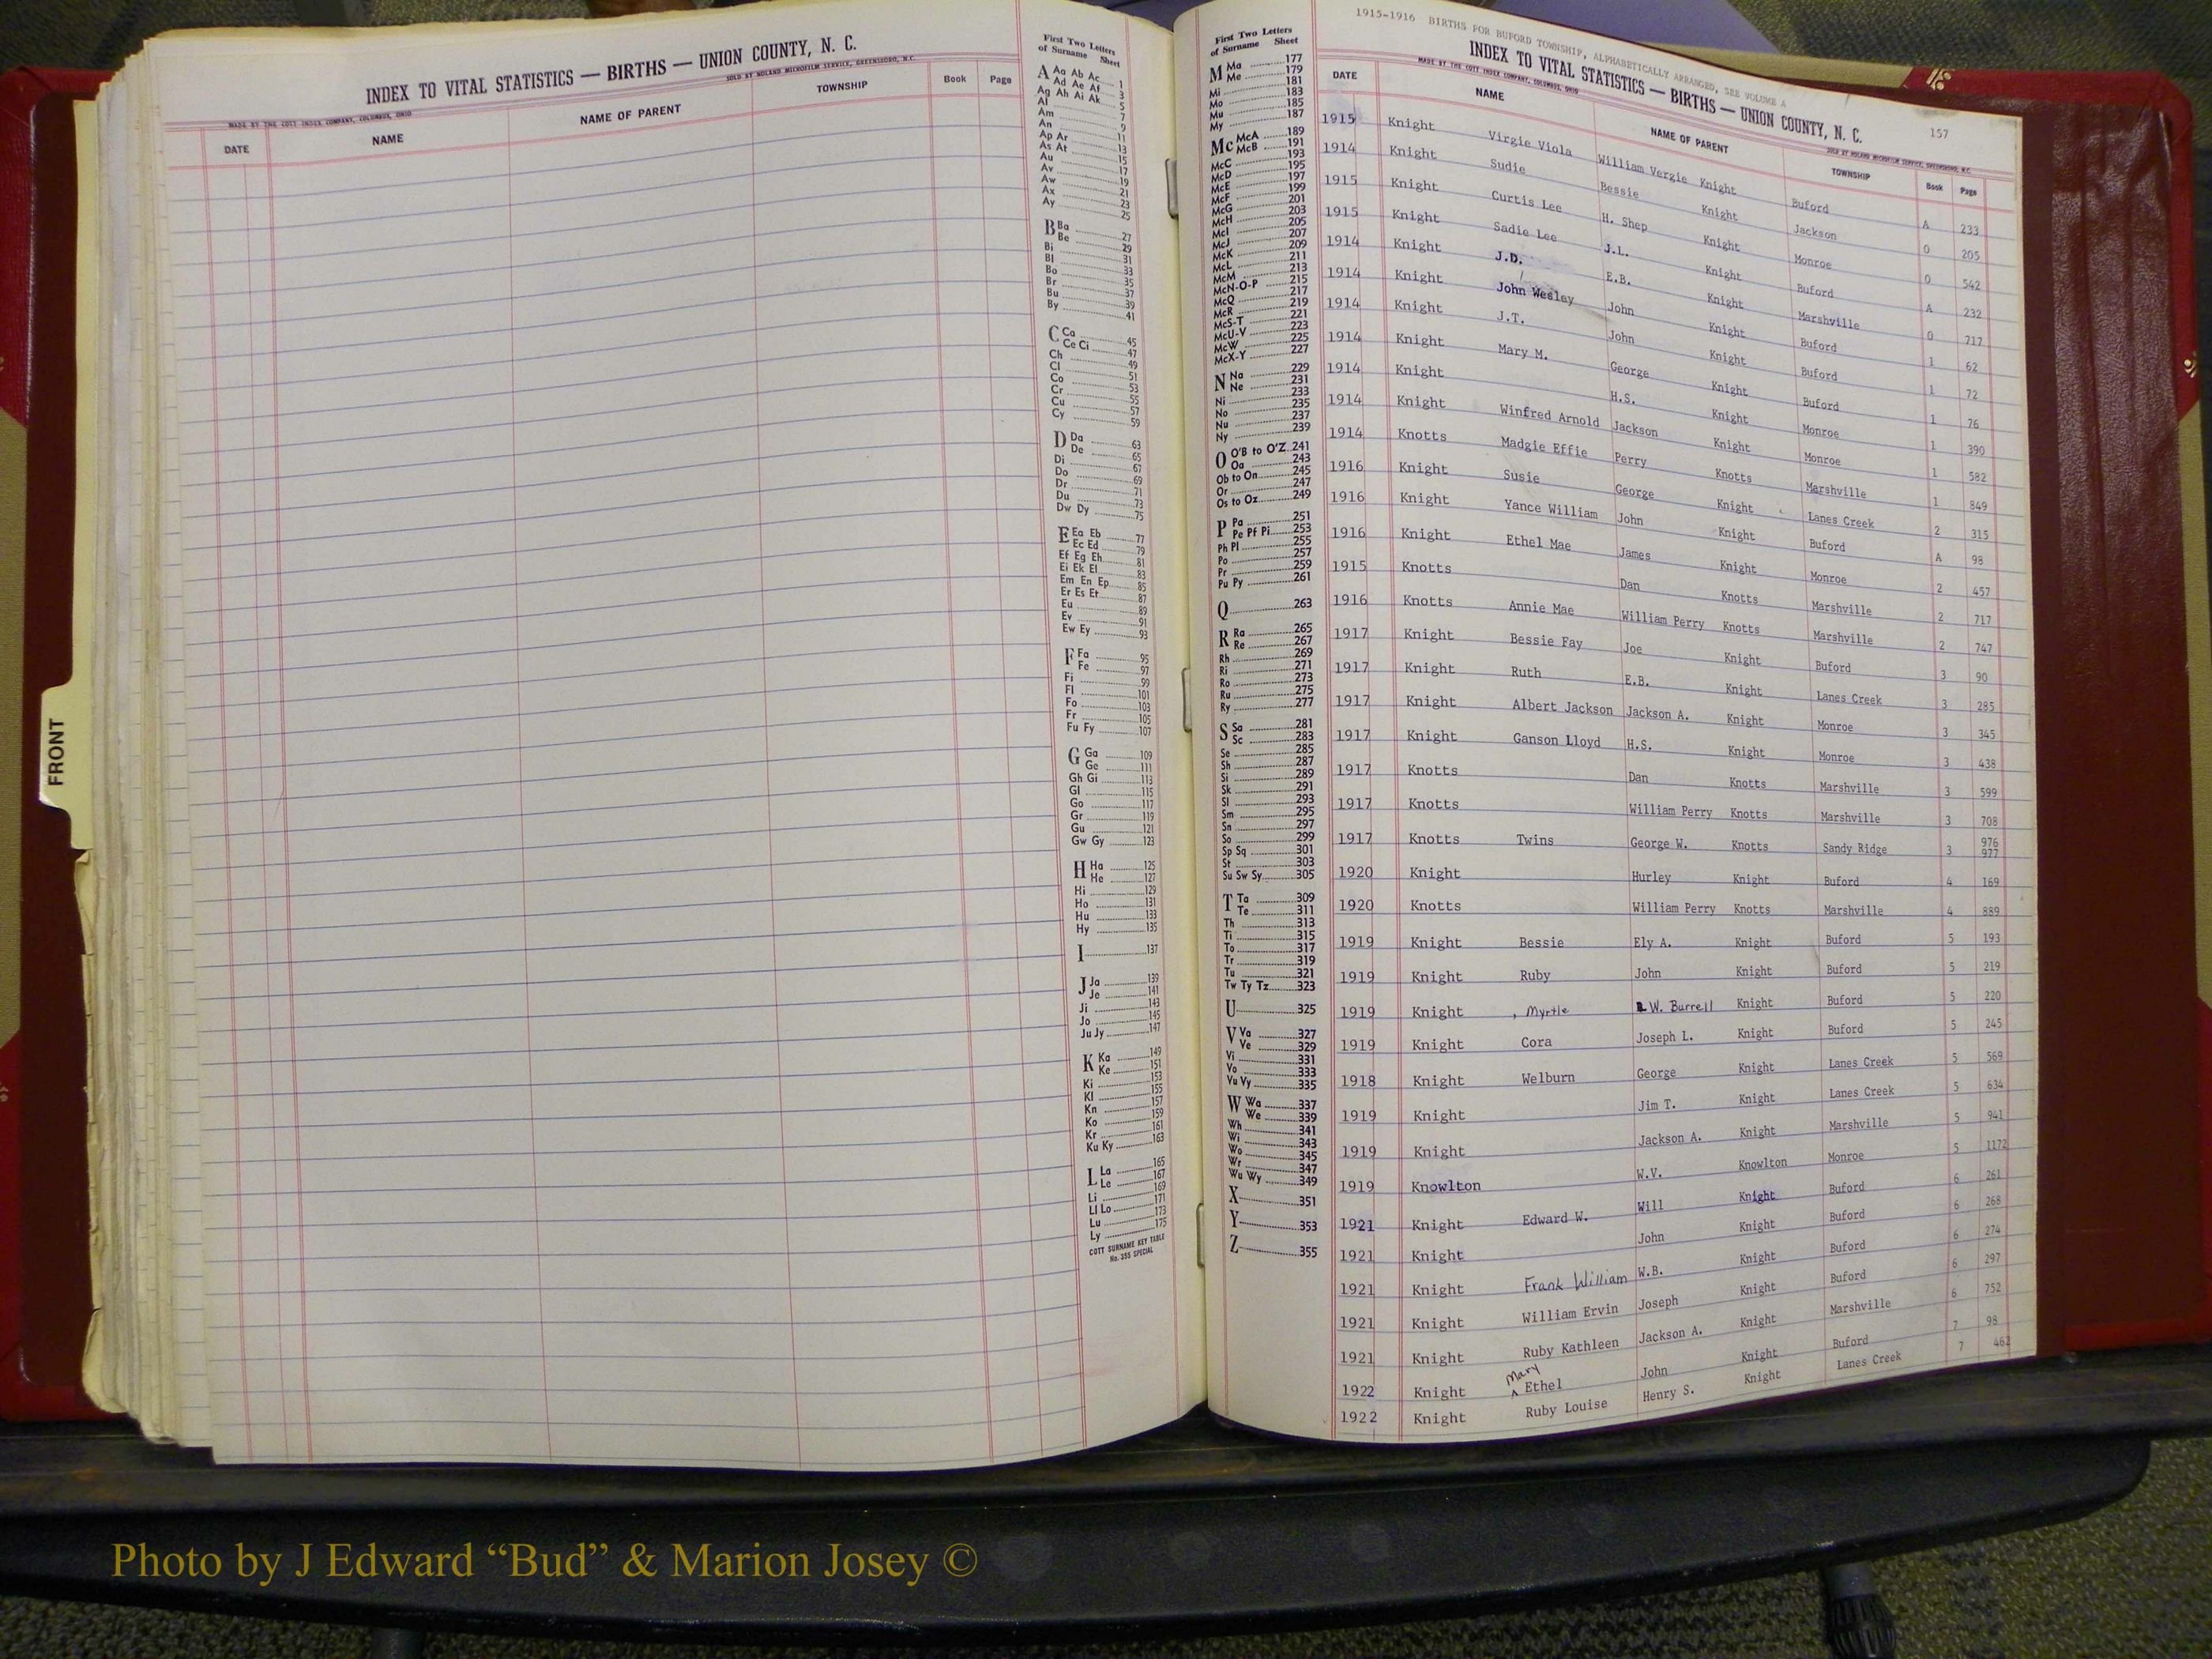 INDEX TO VITAL STATISTICS — BIRTHS — UNION COUNTY, N. C.
MADE BY THE COTT INDEX COMPANY, COLUMBUS, OHIO SOLD BY NOLAND MICROFILM SERVICE, GREENSBORO, N.C.
DATE NAME NAME OF PARENT TOWNSHIP Book Page
First Two Letters
of Surname Sheet
A Aa Ab Ac 1
Ad Ae Af 3
Ag Ah Ai Ak 5
Al 7
Am 9
An 11
Ap Ar 13
As At 15
Au 17
Av 19
Aw 21
Ax 23
Ay 25
B Ba 27
Be 29
Bi 31
Bl 33
Bo 35
Br 37
Bu 39
By 41
C Ca 45
Ce Ci 47
Ch 49
Cl 51
Co 53
Cr 55
Cu 57
Cy 59
D Da 63
De 65
Di 67
Do 69
Dr 71
Du 73
Dw Dy 75
E Ea Eb 77
Ec Ed 79
Ef Eg Eh 81
Ei Ek El 83
Em En Ep 85
Er Es Et 87
Eu 89
Ev 91
Ew Ey 93
F Fa 95
Fe 97
Fi 99
Fl 101
Fo 103
Fr 105
Fu Fy 107
G Ga 109
Ge 111
Gh Gi 113
Gl 115
Go 117
Gr 119
Gu 121
Gw Gy 123
H Ha 125
He 127
Hi 129
Ho 131
Hu 133
Hy 135
I 137
J Ja 139
Je 141
Ji 143
Jo 145
Ju Jy 147
K Ka 149
Ke 151
Ki 153
Kl 155
Kn 157
Ko 159
Kr 161
Ku Ky 163
L La 165
Le 167
Li 169
Ll Lo 171
Lu 173
Ly 175
COTT SURNAME KEY TABLE
No. 355 SPECIAL
FRONT
First Two Letters
of Surname Sheet
M Ma 177
Me 179
Mi 181
Mo 183
Mu 185
My 187
Mc McA 189
McB 191
McC 193
McD 195
McE 197
McF 199
McG 201
McH 203
McI 205
McJ 207
McK 209
McL 211
McM 213
McN-O-P 215
McQ 217
McR 219
McS-T 221
McU-V 223
McW 225
McX-Y 227
N Na 229
Ne 231
Ni 233
No 235
Nu 237
Ny 239
O O'B to O'Z 241
Oa 243
Ob to On 245
Or 247
Os to Oz 249
P Pa 251
Pe Pf Pi 253
Ph Pl 255
Po 257
Pr 259
Pu Py 261
Q 263
R Ra 265
Re 267
Rh 269
Ri 271
Ro 273
Ru 275
Ry 277
S Sa 281
Sc 283
Se 285
Sh 287
Si 289
Sk 291
Sl 293
Sm 295
Sn 297
So 299
Sp Sq 301
St 303
Su Sw Sy 305
T Ta 309
Te 311
Th 313
Ti 315
To 317
Tr 319
Tu 321
Tw Ty Tz 323
U 325
V Va 327
Ve 329
Vi 331
Vo 333
Vu Vy 335
W Wa 337
We 339
Wh 341
Wi 343
Wo 345
Wr 347
Wu Wy 349
X 351
Y 353
Z 355
1915-1916 BIRTHS FOR BUFORD TOWNSHIP, ALPHABETICALLY ARRANGED, SEE VOLUME A
INDEX TO VITAL STATISTICS — BIRTHS — UNION COUNTY, N. C. 157
MADE BY THE COTT INDEX COMPANY, COLUMBUS, OHIO SOLD BY NOLAND MICROFILM SERVICE, GREENSBORO, N.C.
DATE NAME NAME OF PARENT TOWNSHIP Book Page
1915 Knight Virgie Viola William Vergie Knight Buford A 233
1914 Knight Sudie Bessie Knight Jackson 0 205
1915 Knight Curtis Lee H. Shep Knight Monroe 0 542
1915 Knight Sadie Lee J.L. Knight Buford A 232
1914 Knight J.D. E.B. Knight Marshville 0 717
1914 Knight John Wesley John Knight Buford 1 62
1914 Knight J.T. John Knight Buford 1 72
1914 Knight Mary M. George Knight Buford 1 76
1914 Knight H.S. Knight Monroe 1 390
1914 Knight Winfred Arnold Jackson Knight Monroe 1 582
1914 Knotts Madgie Effie Perry Knotts Marshville 1 849
1916 Knight Susie George Knight Lanes Creek 2 315
1916 Knight Yance William John Knight Buford A 98
1916 Knight Ethel Mae James Knight Monroe 2 457
1915 Knotts Dan Knotts Marshville 2 717
1916 Knotts Annie Mae William Perry Knotts Marshville 2 747
1917 Knight Bessie Fay Joe Knight Buford 3 90
1917 Knight Ruth E.B. Knight Lanes Creek 3 285
1917 Knight Albert Jackson Jackson A. Knight Monroe 3 345
1917 Knight Ganson Lloyd H.S. Knight Monroe 3 438
1917 Knotts Dan Knotts Marshville 3 599
1917 Knotts William Perry Knotts Marshville 3 708
1917 Knotts Twins George W. Knotts Sandy Ridge 3 976 977
1920 Knight Hurley Knight Buford 4 169
1920 Knotts William Perry Knotts Marshville 4 889
1919 Knight Bessie Ely A. Knight Buford 5 193
1919 Knight Ruby John Knight Buford 5 219
1919 Knight , Myrtle W. Burrell Knight Buford 5 220
1919 Knight Cora Joseph L. Knight Buford 5 245
1918 Knight Welburn George Knight Lanes Creek 5 569
1919 Knight Jim T. Knight Lanes Creek 5 634
1919 Knight Jackson A. Knight Marshville 5 941
1919 Knowlton W.V. Knowlton Monroe 5 1172
1921 Knight Edward W. Will Knight Buford 6 261
1921 Knight John Knight Buford 6 268
1921 Knight Frank William W.B. Knight Buford 6 274
1921 Knight William Ervin Joseph Knight Buford 6 297
1921 Knight Ruby Kathleen Jackson A. Knight Marshville 6 752
1922 Knight Mary Ethel John Knight Buford 7 98
1922 Knight Ruby Louise Henry S. Knight Lanes Creek 7 462
Photo by J Edward “Bud” & Marion Josey ©